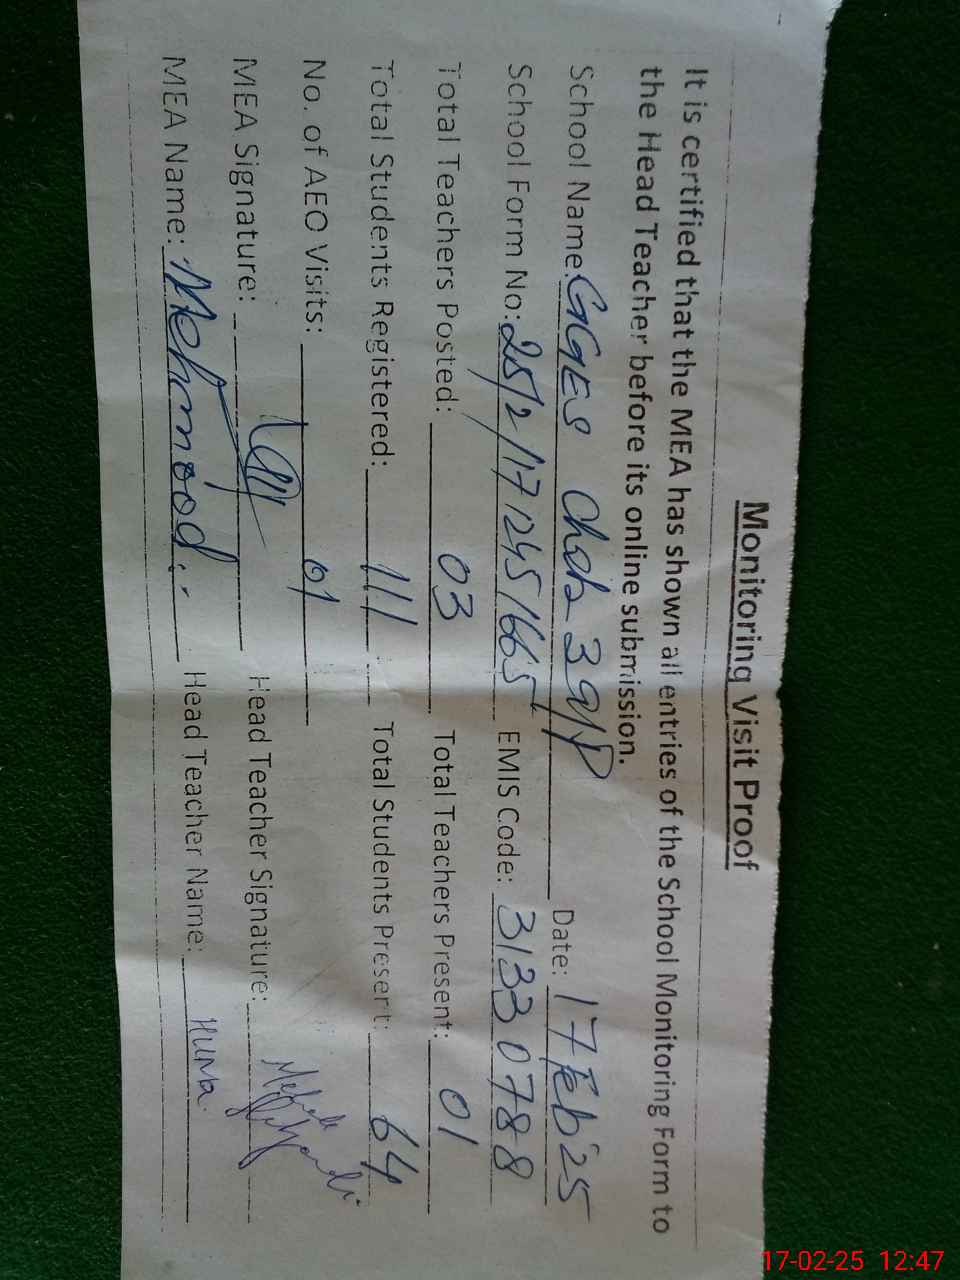 Monitoring Visit Proof
It is certified that the MEA has shown all entries of the School Monitoring Form to
the Head Teacher before its online submission.
School Name: GGES Chak 39/P Date: 17 Feb 25
School Form No: 25/2/17 1245/665 EMIS Code: 31330788
Total Teachers Posted: 03 Total Teachers Present: 01
Total Students Registered: 111 Total Students Present: 64
No. of AEO Visits: 01
MEA Signature: Head Teacher Signature:
MEA Name: Mehmood.. Head Teacher Name: HUMA.
17-02-25 12:47